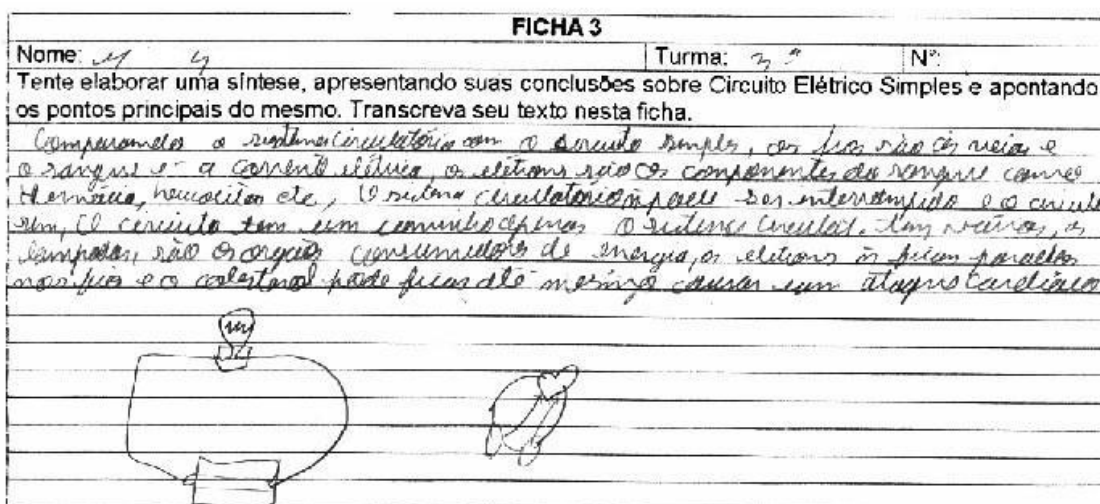 FICHA 3
Nome: Turma: 3ª Nº:
Tente elaborar uma síntese, apresentando suas conclusões sobre Circuito Elétrico Simples e apontando
os pontos principais do mesmo. Transcreva seu texto nesta ficha.
Comparamdo o sistema circulatório com o circuito simples, os fios são as veias e
o sangue é a corrente elétrica, os elétrons são os componentes do sangue como
Hemácia, etc, O sistema circulatório ñ pode ser interrompido e o circuito
sim, O circuito tem um caminho apenas O sistema Circulat. tem vários, as
lampadas, são os orgãos consumidores de energia, os elétrons ñ ficam parados
nos fios e o colesterol pode ficar até mesmo causar um ataque Cardíaco